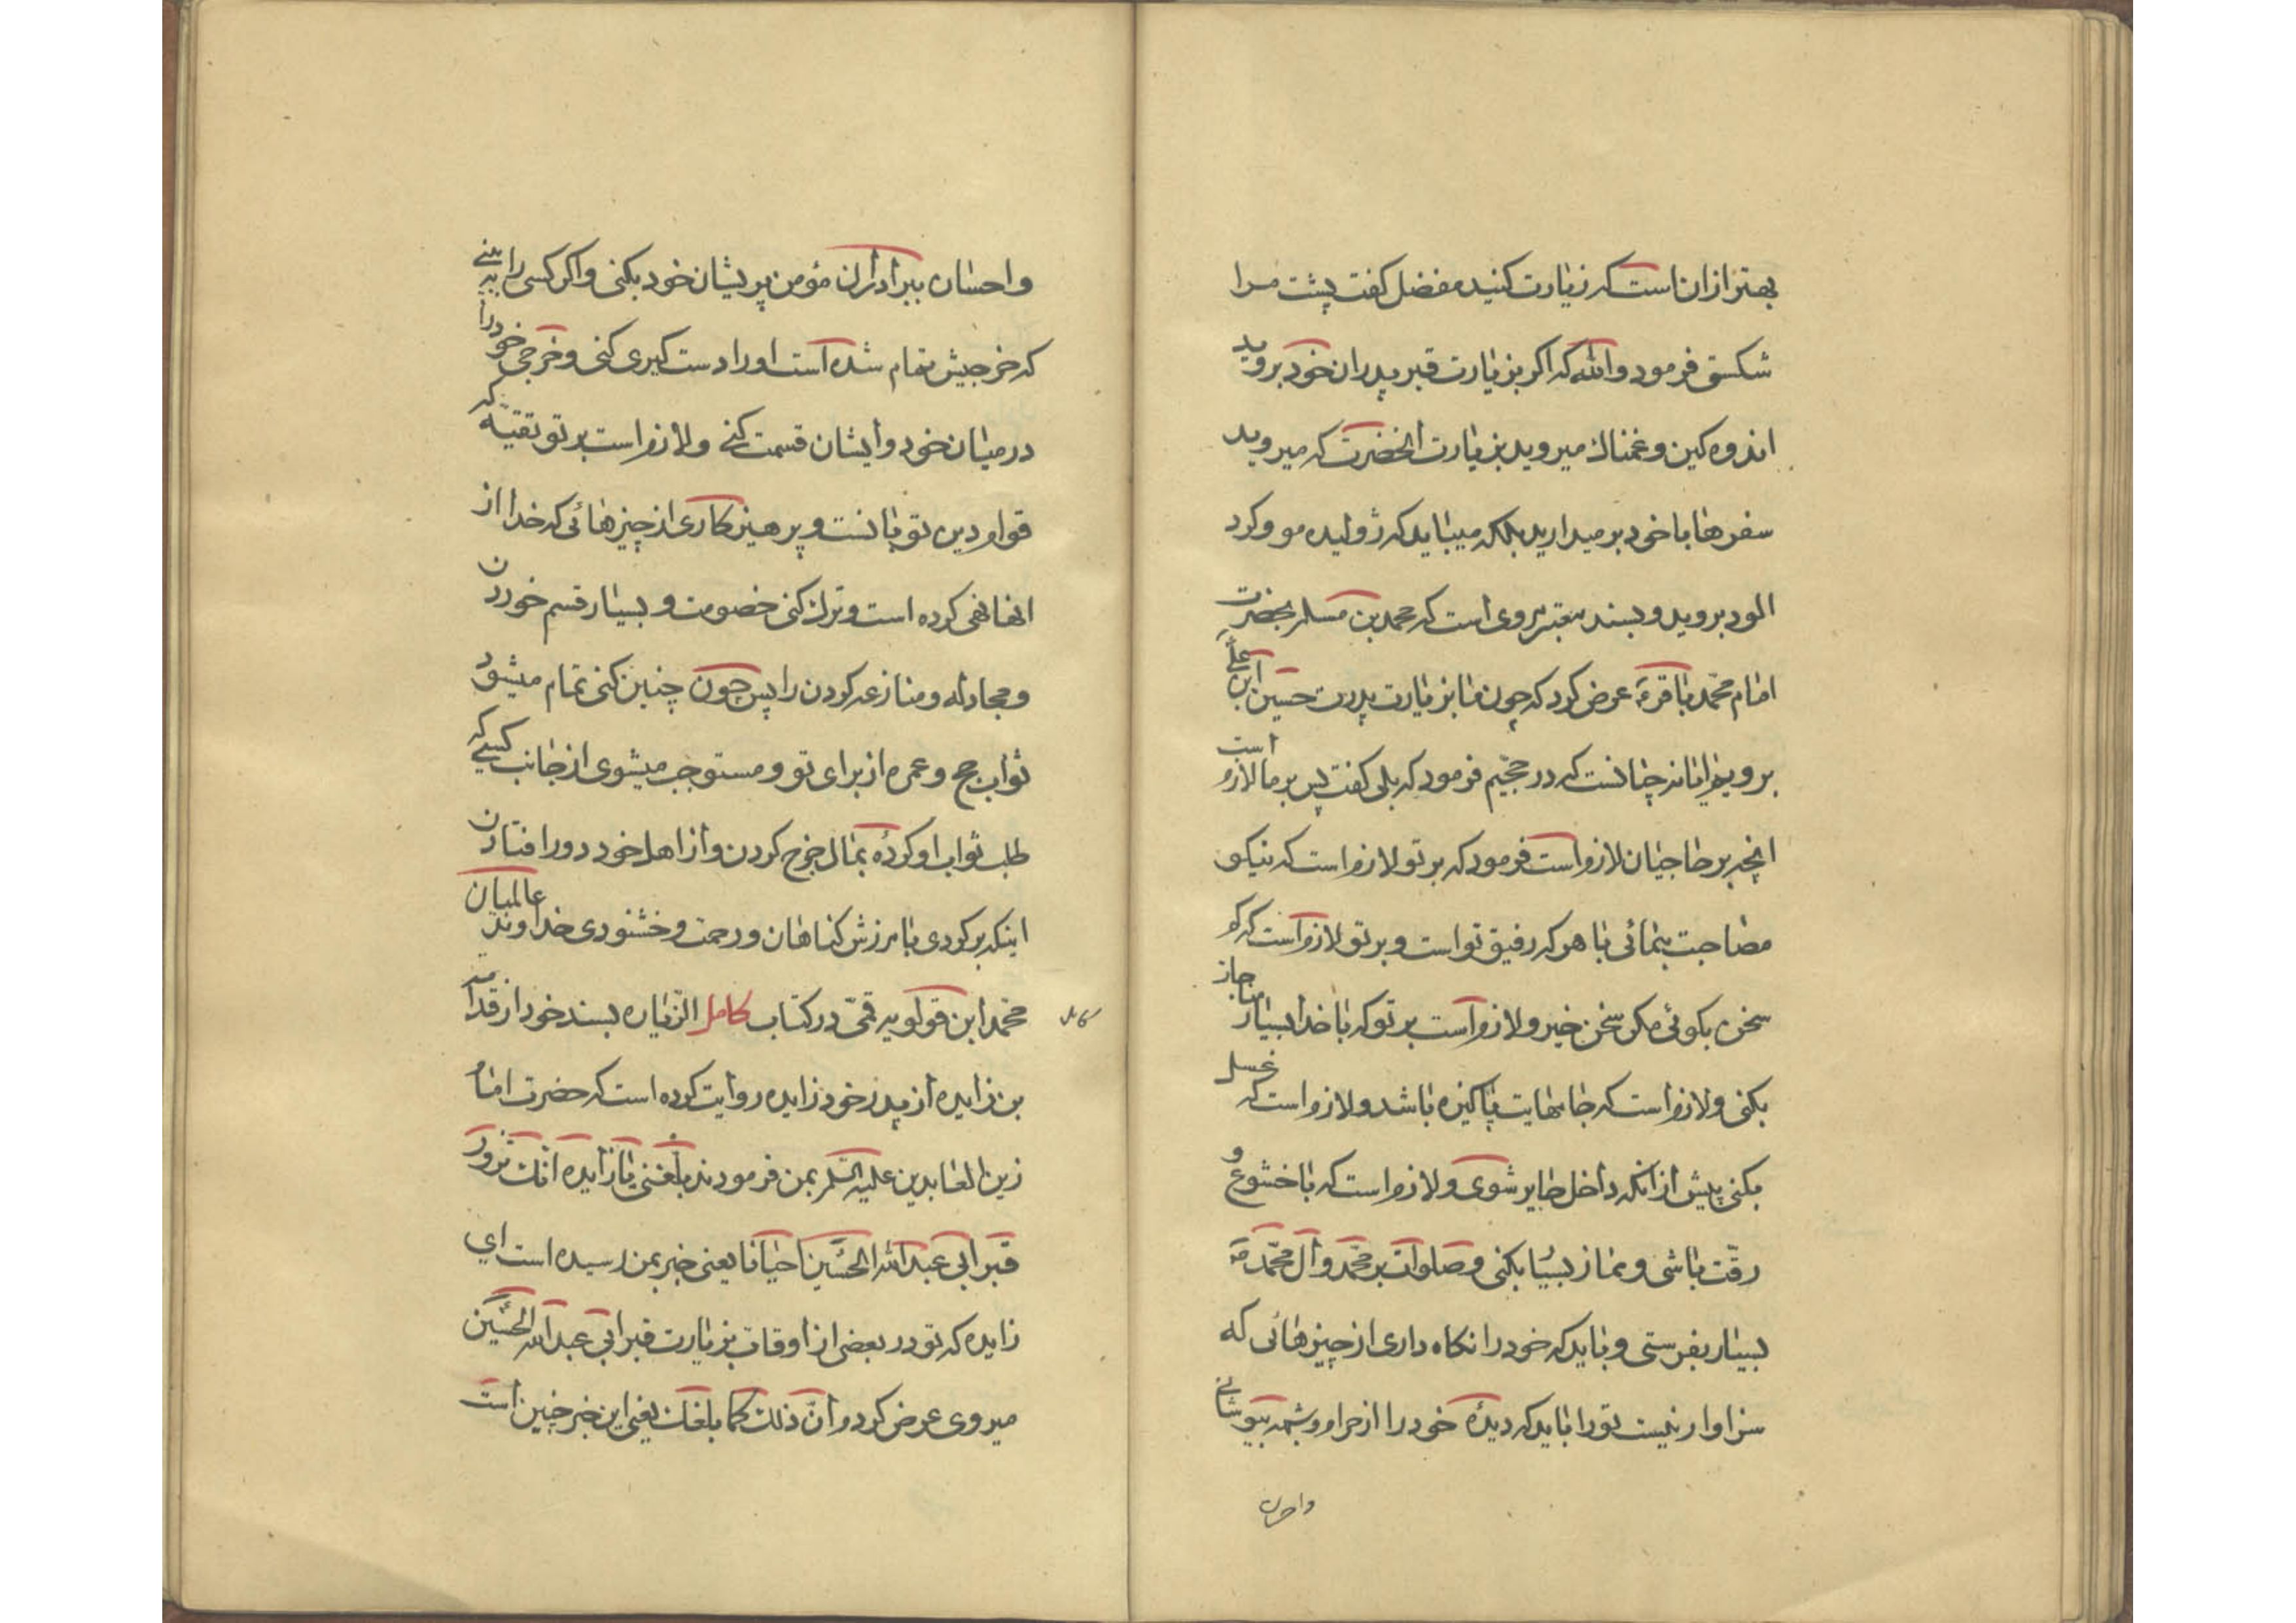 بهتر از ان است که زیارت کنید مفضل کفت پشت مرا
شکستی فرمود والله که اکر بزیارت قبر پدران خود بروید
اندوه کین و غمناک میروید بزیارت انحضرت که میروید
سفرها با خود بر میدارید بلکه میباید که ژولیده مو و کرد
الود بروید و بسند معتبر مروی است که محمد بن مسلم بحضرت
امام محمد باقر ع عرض کرد که چون ما بزیارت پدرت حسین ابن علی ع
برویم ایا نه چنانست که در حجیم فرمود که بلی کفت پس بر ما لازم است
انچه بر حاجیان لازم است فرمود که بر تو لازم است که نیکو
مصاحبت بنمائی با هر که رفیق تو است و بر تو لازم است که کم
سخن بکوئی مکر سخن خیر و لازم است بر تو که با خدا بسیار مناجاز
بکنی و لازم است که جامهایت پاکیزه باشد و لازم است که غسل
بکنی پیش از انکه داخل حایر شوی و لازم است که با خشوع و
رقت باشی و نماز بسیا بکنی و صلوات بر محمد و آل محمد ص
بسیار بفرستی و باید که خود را نکاه داری از چیزهائی که
سزاوار نیست تو را باید که دیده خود را از حرام و شبهه بپوشانی
واحسان
واحسان ببرادران مؤمن پریشان خود بکنی و اکر کسی را ببینی
که خرجیش تمام شده است او را دست کیری کنی و خرجی خود را
در میان خود و ایشان قسمت کنی و لازم است بر تو تقیه که
قوام دین تو بانست و پرهیز کاری از چیزهائی که خدا از
انها نهی کرده است و ترک کنی خصومت و بسیار قسم خوردن
و مجادله و منازعه کردن را پس چون چنین کنی تمام میشود
ثواب حج و عمره از برای تو و مستوجب میشوی از جانب کسی که
طلب ثواب او کرده بمال خرج کردن و از اهل خود دور افتادن
اینکه بر کردی با مرزش کناهان و رحمت و خشنودی خداوند عالمیان
محمد ابن قولویه قمی در کتاب کامل الزیاره بسند خود از قدامه
کامل
بن زایده از پدر خود زایده روایت کرده است که حضرت امام
زین العابدین علیه السلم بمن فرمودند بلغنی یا زایده انک تزور
قبر ابی عبدالله الحسین احیانا یعنی خبر بمن رسیده است ای
زایده که تو در بعضی از اوقات بزیارت قبر ابی عبدالله الحسین
میروی عرض کردم ان ذلک کما بلغک یعنی این خبر چنین است